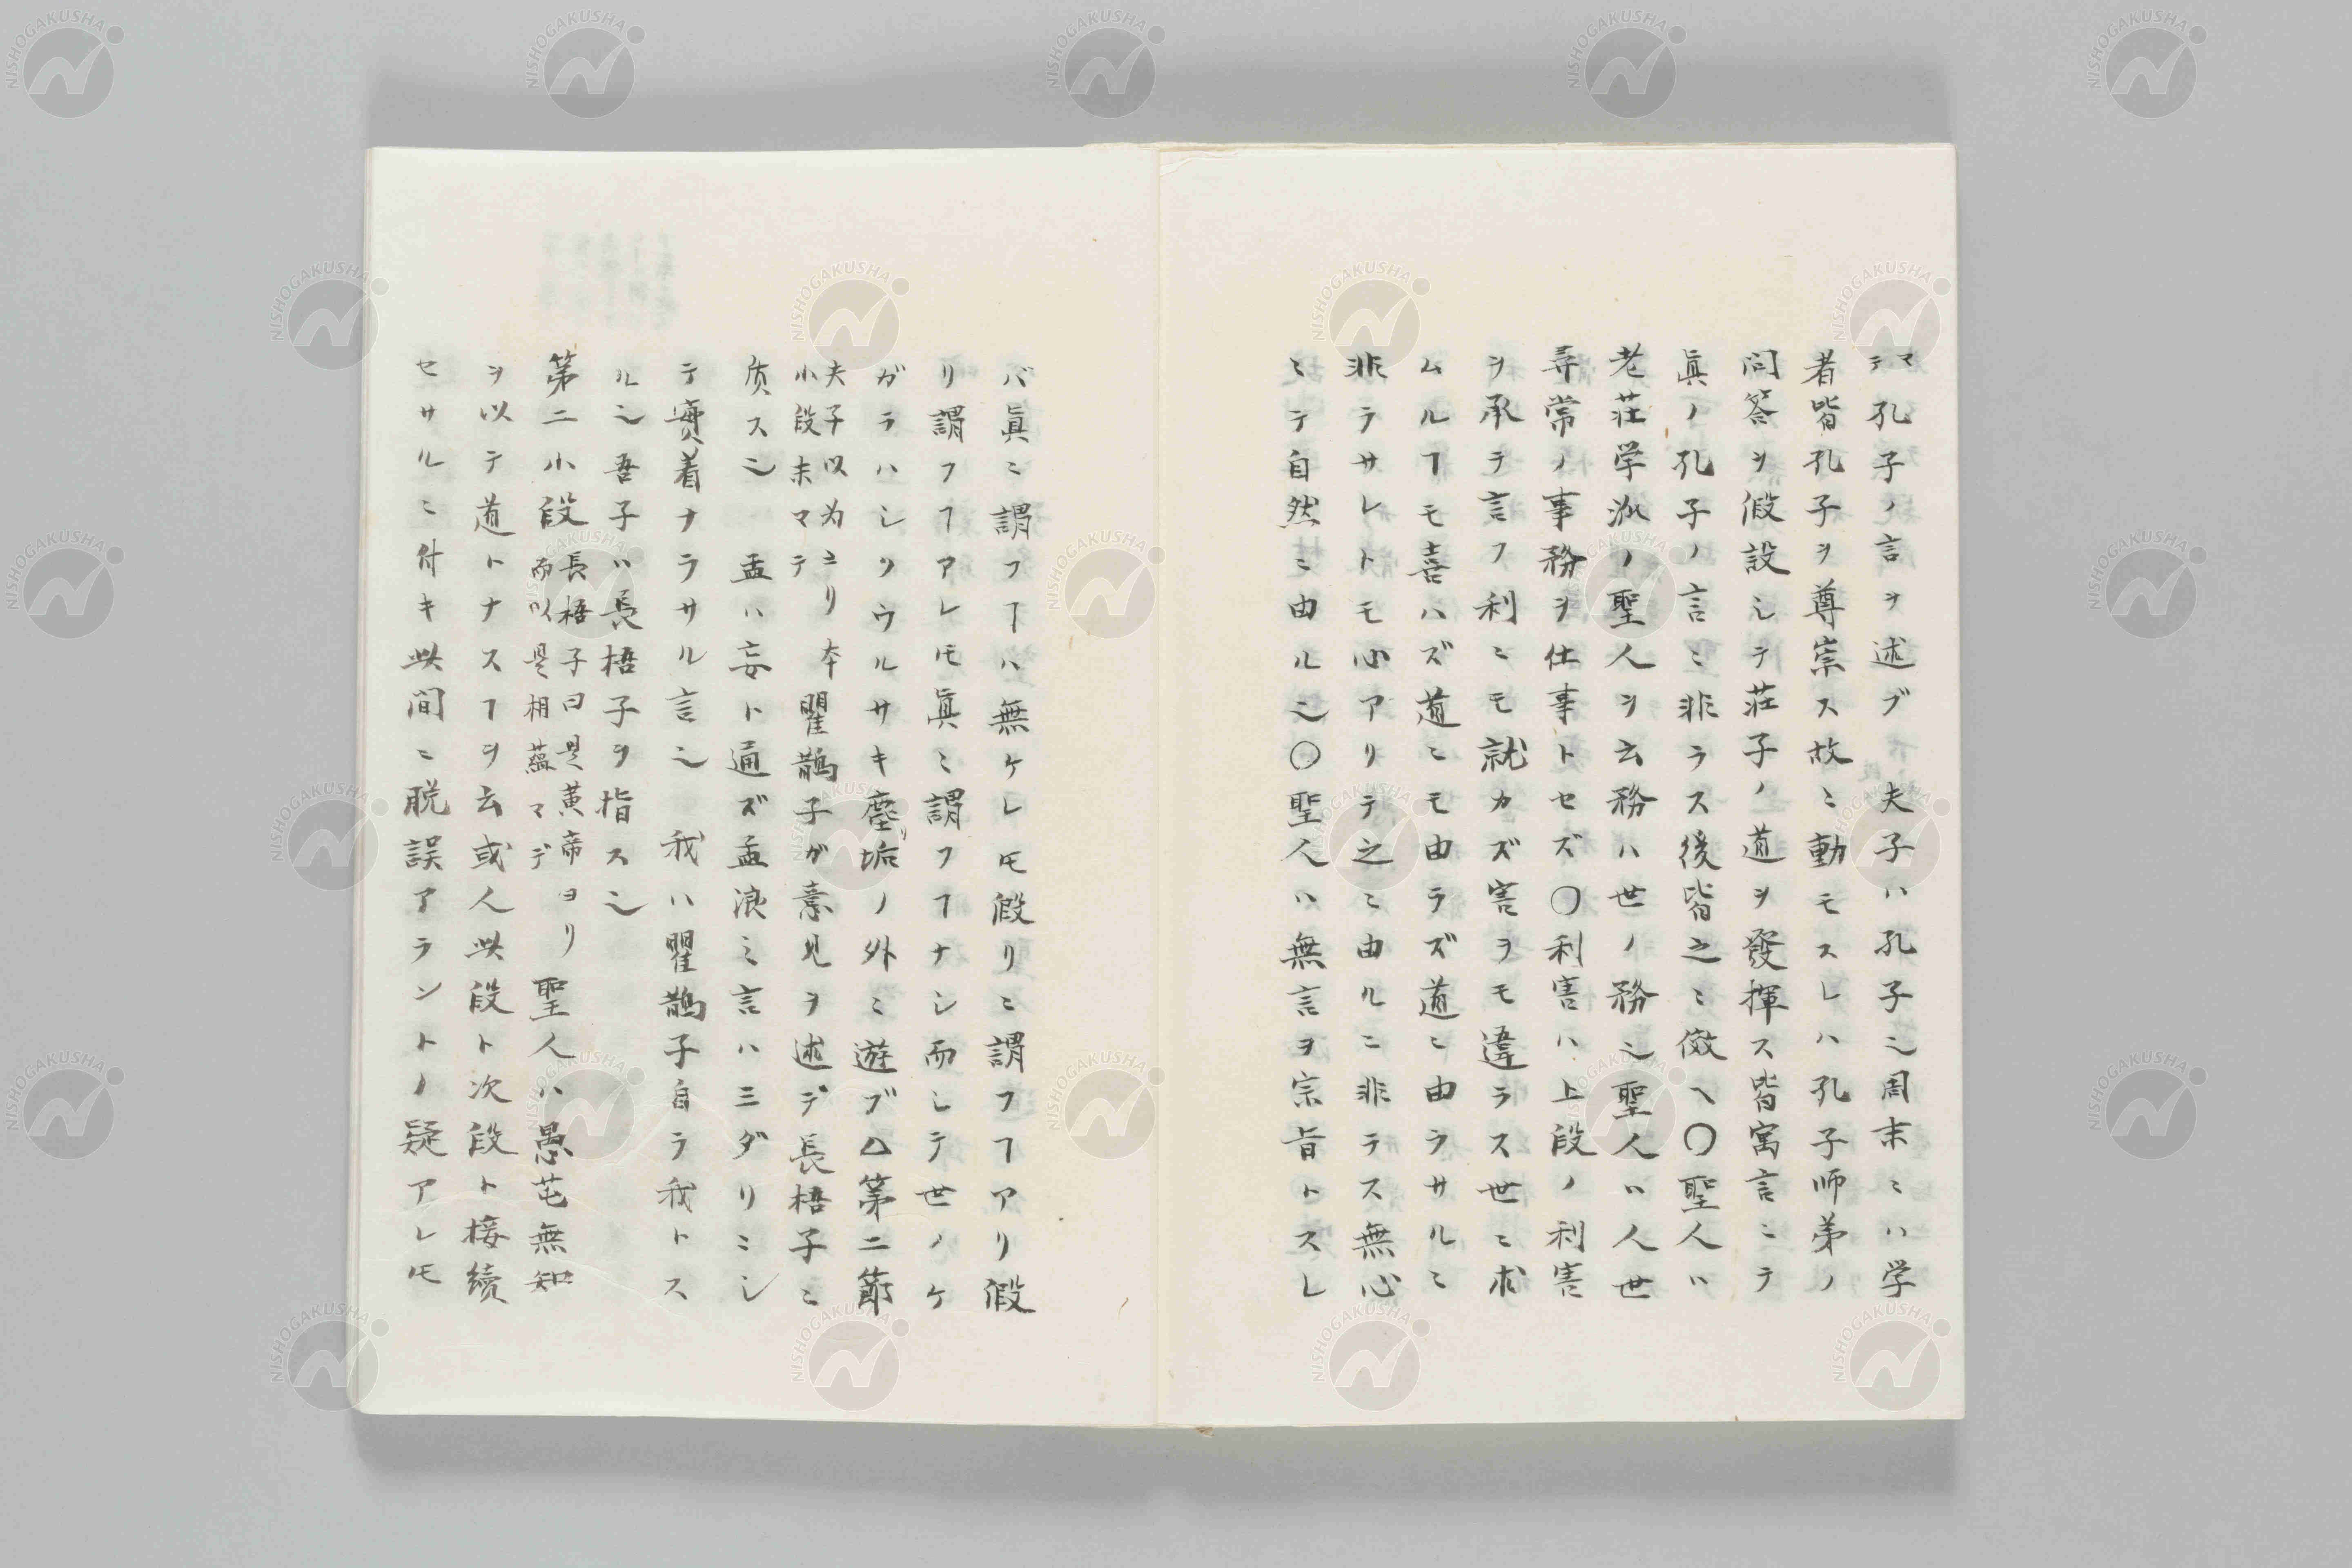 マデ孔子ノ言ヲ述ブ 夫子ハ孔子ﾆ周末ミハ学
者皆孔子ヲ尊崇ス故ミ動モスレハ孔子師弟ノ
問答ヲ假設シテ荘子ノ道ヲ發揮ス皆寓言ミテ
眞ノ孔子ノ言ミ非ラス後皆之ミ倣ヘ〇聖人ハ
老荘学派ノ聖人ヲ云務ハ世ノ務也聖人ハ人世
尋常ノ事務ヲ仕事トセズ〇利害ハ上段ノ利害
ヲ承テ言フ利ミモ就カズ害ヲモ違ラス世ミ求
ムルヿモ喜ハズ道ミモ由ラズ道ミ由ラサルミ
非ラサレトモ心アリテ之ミ由ルニ非ラス無心
ミテ自然ミ由ル也〇聖人ハ無言ヲ宗旨トスレ
バ眞ミ謂フヿハ無ケレㇳモ假リミ謂フヿアリ假
リ謂フヿアレㇳモ眞ミ謂フヿナシ而シテ世ノケ
ガラハシクウルサキ塵垢ノ外ミ遊ブ△第二節
夫子以为ヨリ本
小段末マテ
瞿鵲子ガ意見ヲ述デ長梧子ミ
质ス也 孟ハ妄ト通ズ孟浪ミ言ハミダリミシ
テ實着ナラサル言也 我ハ瞿鵲子自ラ我トス
ル也吾子ハ長梧子ヲ指ス也
第二小段
長梧子曰是黄帝ヨリ
而以是相蘊マデ
聖人ハ愚芚無知
ヲ以テ道トナスヿヲ云或人此段ト次段ト接続
セサルミ付キ此間ミ脱誤アラントノ疑アレㇳモ